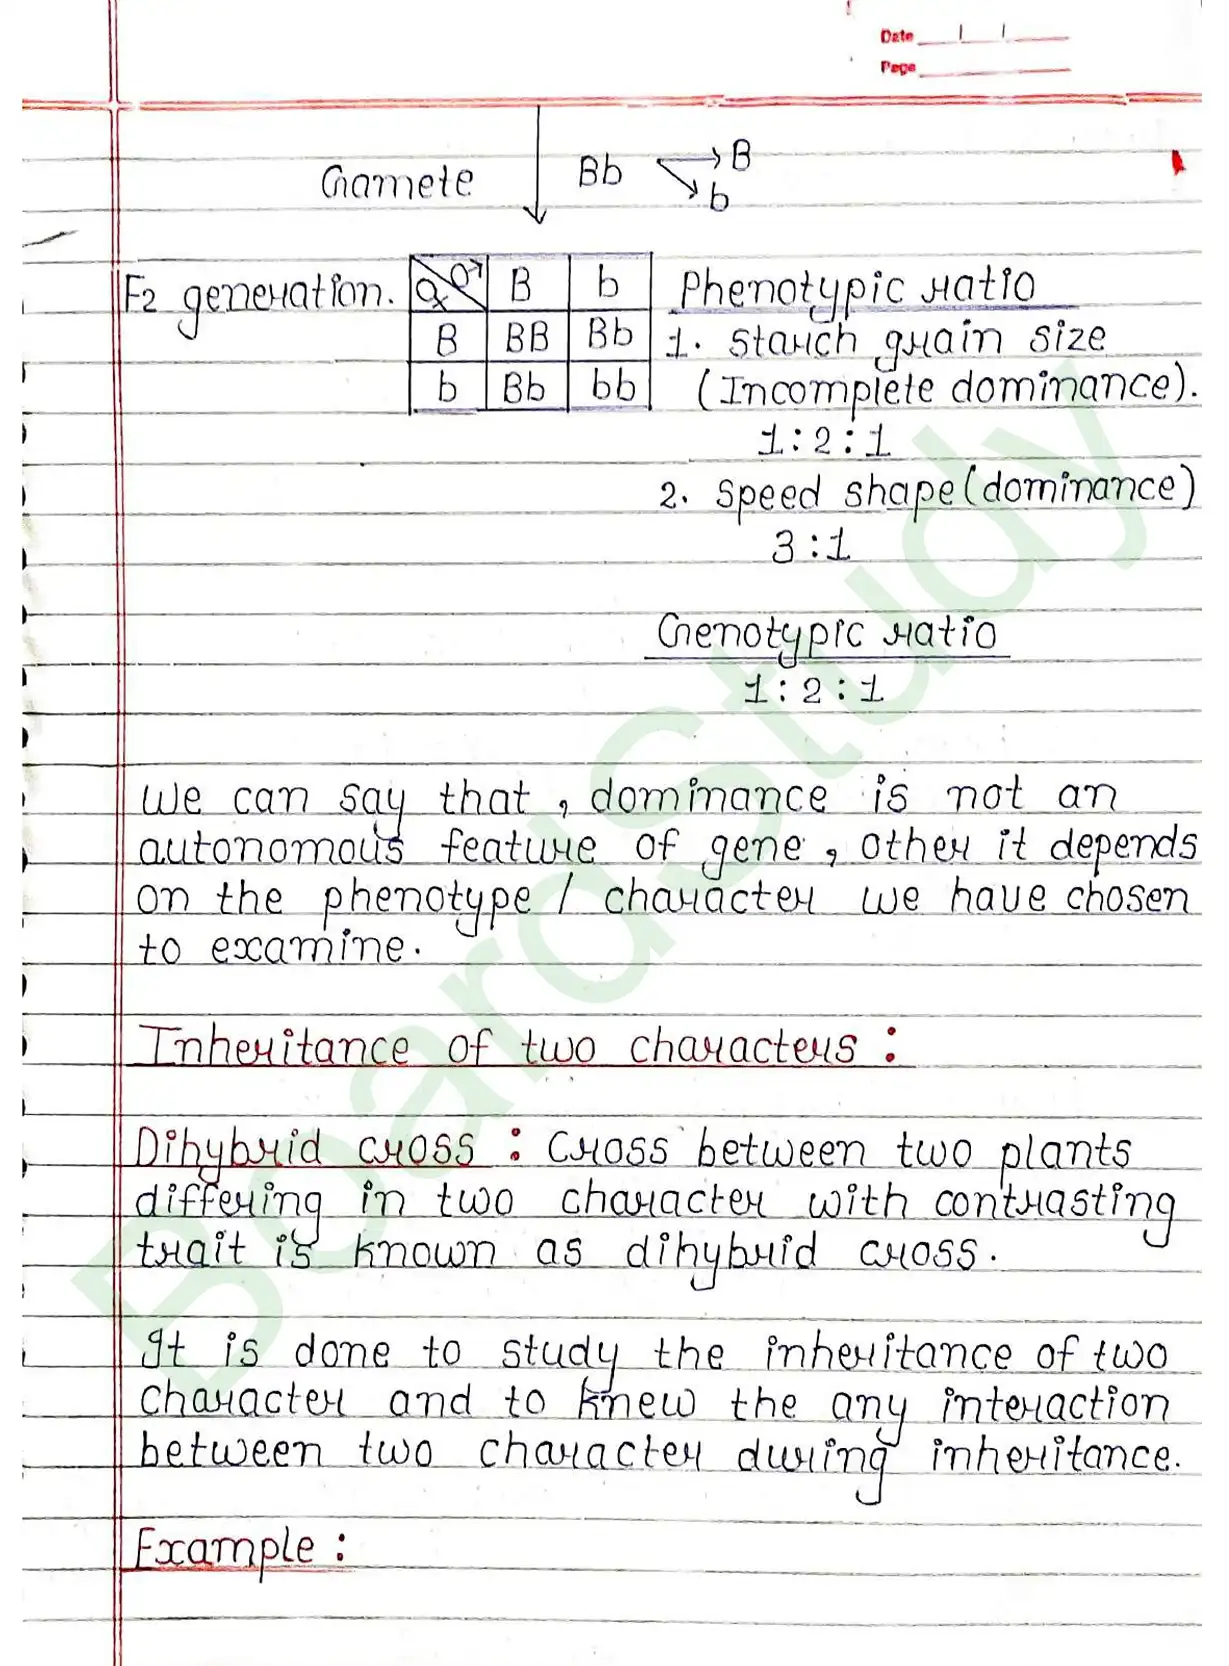 Date
Page
Gamete Bb B
b
F2 generation. ♀ ♂ B b
B BB Bb
b Bb bb
Phenotypic ratio
1. Starch grain size
(Incomplete dominance).
1:2:1
2. Speed shape (dominance)
3:1
Genotypic ratio
1:2:1
We can say that, dominance is not an
autonomous feature of gene, other it depends
on the phenotype / character we have chosen
to examine.
Inheritance of two characters:
Dihybrid cross: Cross between two plants
differing in two character with contrasting
trait is known as dihybrid cross.
It is done to study the inheritance of two
character and to knew the any interaction
between two character during inheritance.
Example:
BoardStudy